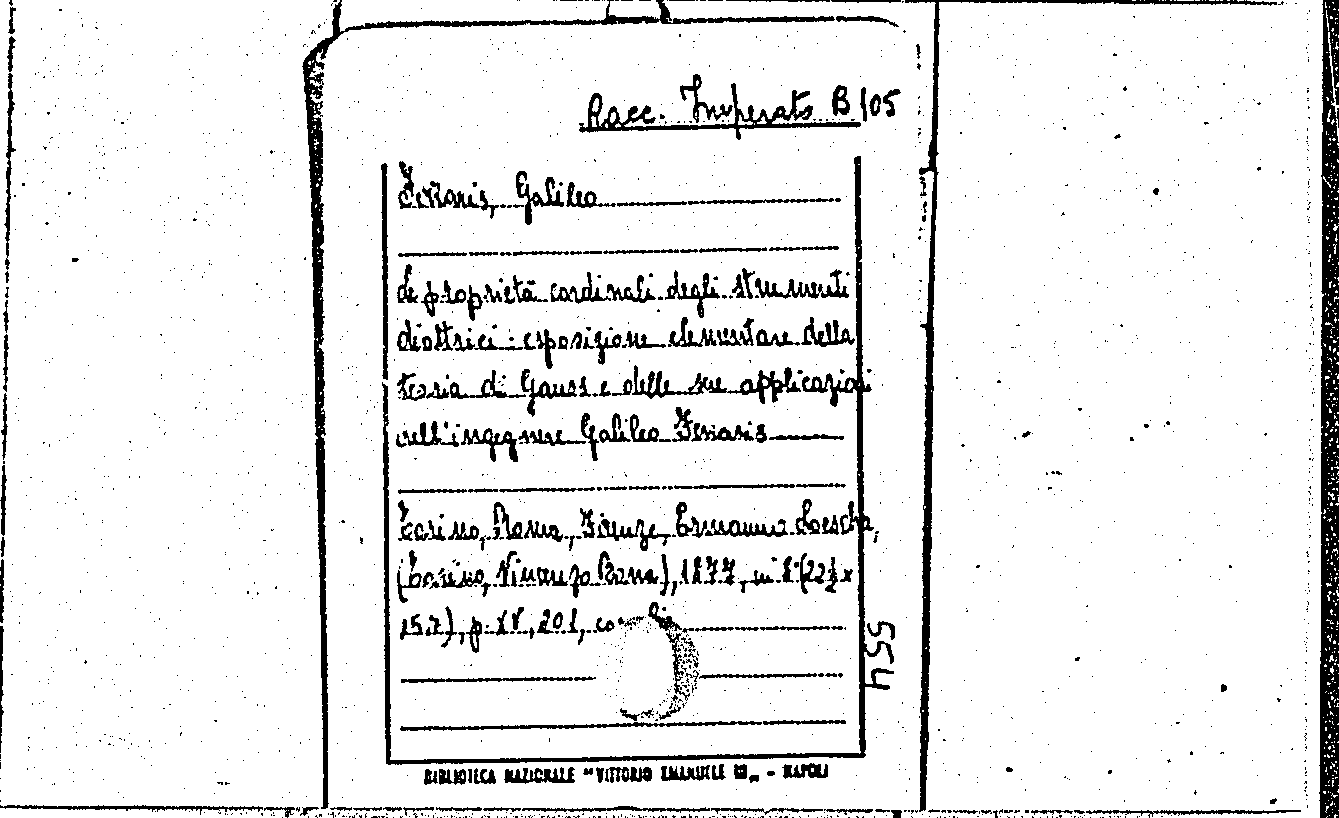 Racc. Imperato B 105
Ferraris, Galileo
Le proprietà cardinali degli strumenti
diottrici : esposizione elementare della
teoria di Gauss e delle sue applicazioni
dell'ingegnere Galileo Ferraris
Torino, Roma, Firenze, Ermanno Loescher,
(Torino, Vincenzo Bona), 1877, in 8° (22½ x
15.7), p. XV, 201,
554
BIBLIOTECA NAZIONALE "VITTORIO EMANUELE III„ - NAPOLI